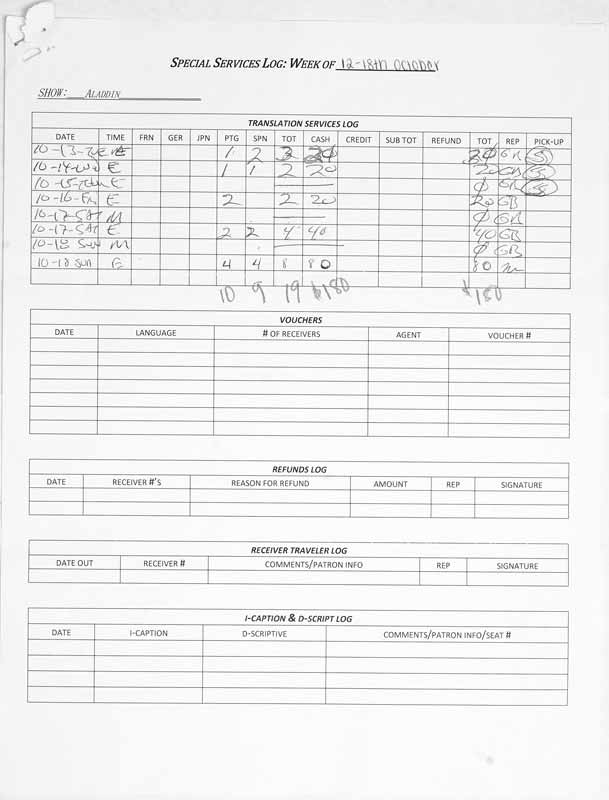 SPECIAL SERVICES LOG: WEEK OF 12-18th October
SHOW: ALADDIN
TRANSLATION SERVICES LOG
DATE TIME FRN GER JPN PTG SPN TOT CASH CREDIT SUB TOT REFUND TOT REP PICK-UP
10-13- E 1 2 3 GR S
10-14-Wed E 1 1 2 20 20 GB S
10-15- E 0 GB S
10-16-Fri E 2 2 20 20 GB
10-17-SAT M 0 GB
10-17-SAT E 2 2 4 40 40 GB
10-18 Sun M 0 GB
10-18 Sun E 4 4 8 80 80
10 9 19 $180 $180
VOUCHERS
DATE LANGUAGE # OF RECEIVERS AGENT VOUCHER #
REFUNDS LOG
DATE RECEIVER #'S REASON FOR REFUND AMOUNT REP SIGNATURE
RECEIVER TRAVELER LOG
DATE OUT RECEIVER # COMMENTS/PATRON INFO REP SIGNATURE
I-CAPTION & D-SCRIPT LOG
DATE I-CAPTION D-SCRIPTIVE COMMENTS/PATRON INFO/SEAT #